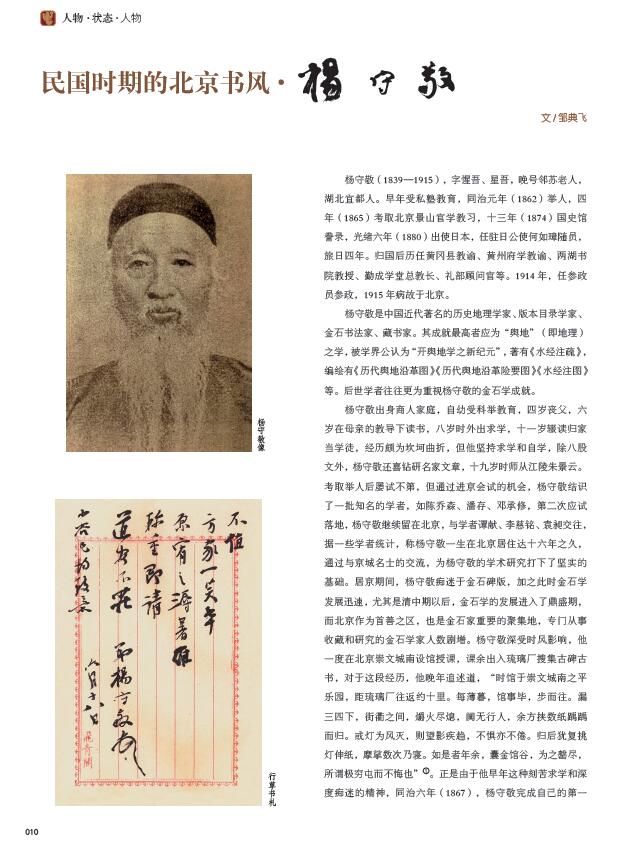 人物·状态·人物
民国时期的北京书风·杨守敬
文/邹典飞
杨守敬（1839—1915），字惺吾、星吾，晚号邻苏老人，
湖北宜都人。早年受私塾教育，同治元年（1862）举人，四
年（1865）考取北京景山官学教习，十三年（1874）国史馆
誊录，光绪六年（1880）出使日本，任驻日公使何如璋随员，
旅日四年。归国后历任黄冈县教谕、黄州府学教谕、两湖书
院教授、勤成学堂总教长、礼部顾问官等。1914 年，任参政
员参政，1915 年病故于北京。
杨守敬是中国近代著名的历史地理学家、版本目录学家、
金石书法家、藏书家。其成就最高者应为“舆地”（即地理）
之学，被学界公认为“开舆地学之新纪元”，著有《水经注疏》，
编绘有《历代舆地沿革图》《历代舆地沿革险要图》《水经注图》
等。后世学者往往更为重视杨守敬的金石学成就。
杨守敬出身商人家庭，自幼受科举教育，四岁丧父，六
岁在母亲的教导下读书，八岁时外出求学，十一岁辍读归家
当学徒，经历颇为坎坷曲折，但他坚持求学和自学，除八股
文外，杨守敬还喜钻研名家文章，十九岁时师从江陵朱景云。
考取举人后屡试不第，但通过进京会试的机会，杨守敬结识
了一批知名的学者，如陈乔森、潘存、邓承修，第二次应试
落地，杨守敬继续留在北京，与学者谭献、李慈铭、袁昶交往，
据一些学者统计，称杨守敬一生在北京居住达十六年之久，
通过与京城名士的交流，为杨守敬的学术研究打下了坚实的
基础。居京期间，杨守敬痴迷于金石碑版，加之此时金石学
发展迅速，尤其是清中期以后，金石学的发展进入了鼎盛期，
而北京作为首善之区，也是金石家重要的聚集地，专门从事
收藏和研究的金石学家人数剧增。杨守敬深受时风影响，他
一度在北京崇文城南设馆授课，课余出入琉璃厂搜集古碑古
书，对于这段经历，他晚年追述道，“时馆于崇文城南之平
乐园，距琉璃厂往返约十里。每薄暮，馆事毕，步而往。漏
三四下，街衢之间，爝火尽熄，阒无行人，余方挟数纸踽踽
而归。或灯为风灭，则望影疾趋，不惧亦不倦。归后犹复挑
灯伸纸，摩挲数次乃寝。如是者年余，囊金馆谷，为之罄尽，
所谓极穷也而不悔也”①。正是由于他早年这种刻苦求学和深
度痴迷的精神，同治六年（1867），杨守敬完成自己的第一
杨守敬像
不值
方家一笑耳
请
弟杨守敬
八月十八日
行草书札
010